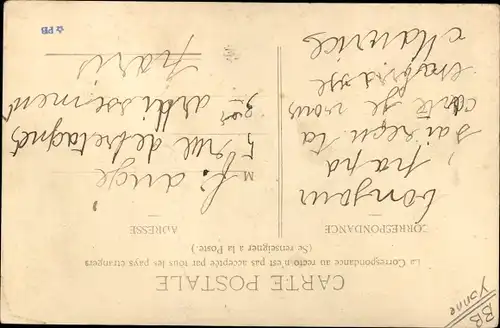 CARTE POSTALE
La Correspondance au recto n'est pas acceptée par tous les pays étrangers
(Se renseigner à la Poste.)
CORRESPONDANCE
bonjour
papa
j'ai reçu ta
carte je vous
embrasse
Maurice
ADRESSE
M
5 rue de bretagne
3em ardissement
paris
☆PB
BB
Yonne